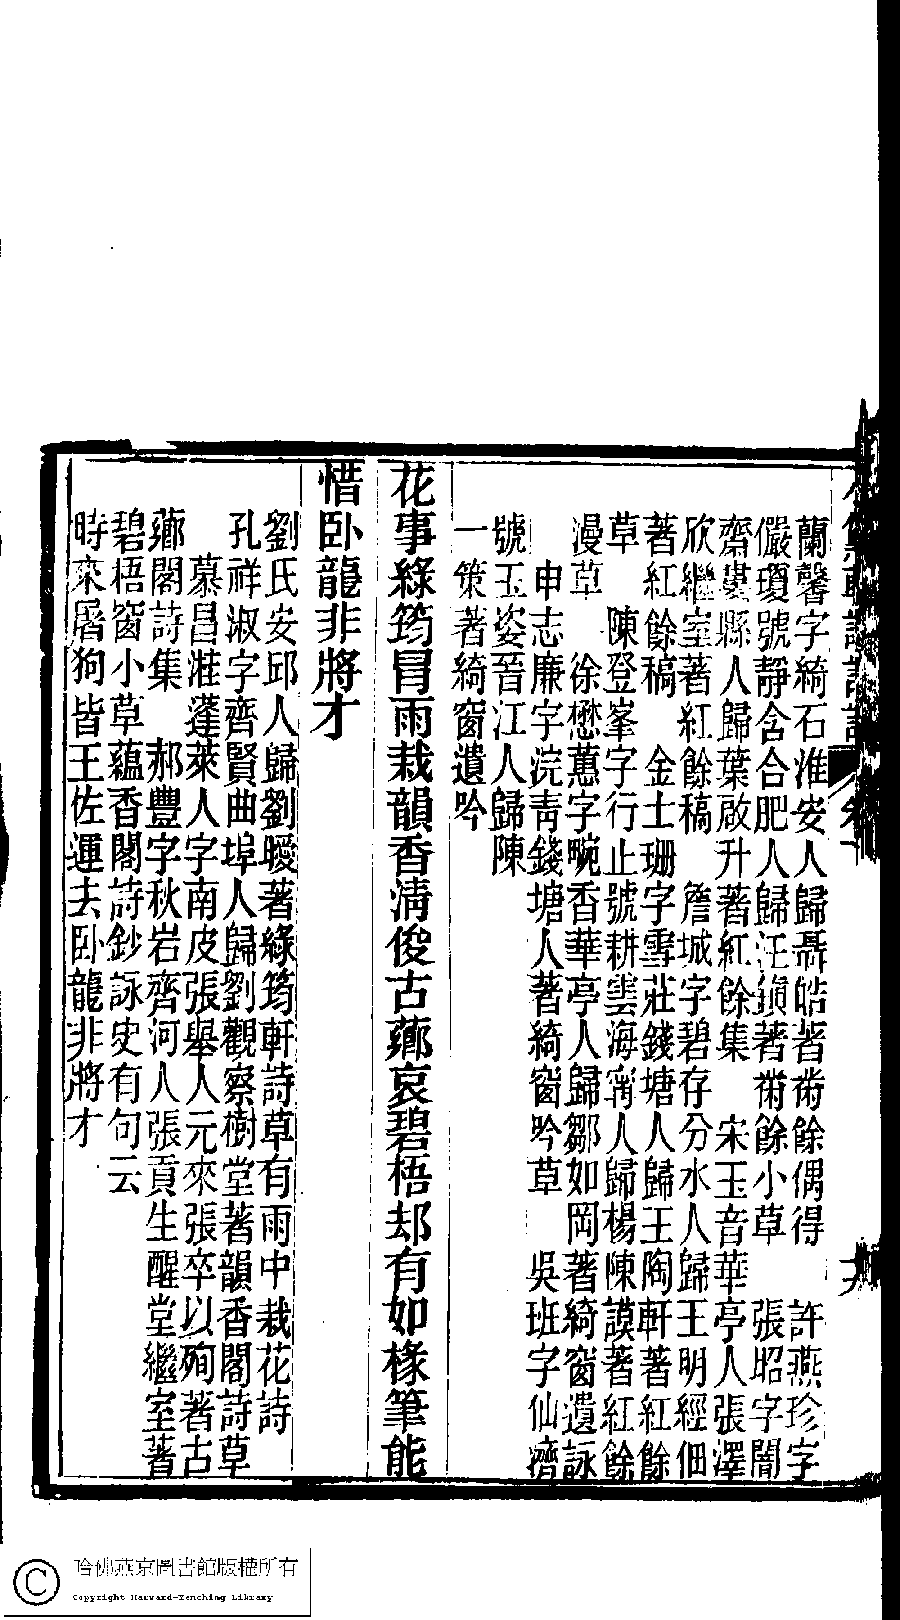 蘭馨字綺石淮安人歸聶皓著術餘偶得　許燕珍字
儼瓊號靜含合肥人歸汪鎮著術餘小草　張昭字闇
齋婁縣人歸葉啟升著紅餘集　宋玉音華亭人張澤
欣繼室著紅餘稿　詹城字碧存分水人歸王明經佃
著紅餘稿　金士珊字雪莊錢塘人歸王陶軒著紅餘
草　陳登峯字行止號耕雲海甯人歸楊陳謨著紅餘
漫草　徐懋蕙字畹香華亭人歸鄒如岡著綺窗遺詠
申志廉字浣青錢塘人著綺窗吟草　吳班字仙癠
號玉姿晉江人歸陳
一策著綺窗遺吟
花事綠筠冒雨栽韻香清俊古薌哀碧梧却有如椽筆能
惜卧龍非將才
劉氏安邱人歸劉曖著綠筠軒詩草有雨中栽花詩
孔祥淑字齊賢曲埠人歸劉觀察樹堂著韻香閣詩草
慕昌溎蓬萊人字南皮張舉人元來張卒以殉著古
薌閣詩集　郝豐字秋岩齊河人張貢生醒堂繼室著
碧梧窗小草蘊香閣詩鈔詠史有句云
時來屠狗皆王佐運去卧龍非將才
哈佛燕京圖書館版權所有
Copyright Harvard-Yenching Library